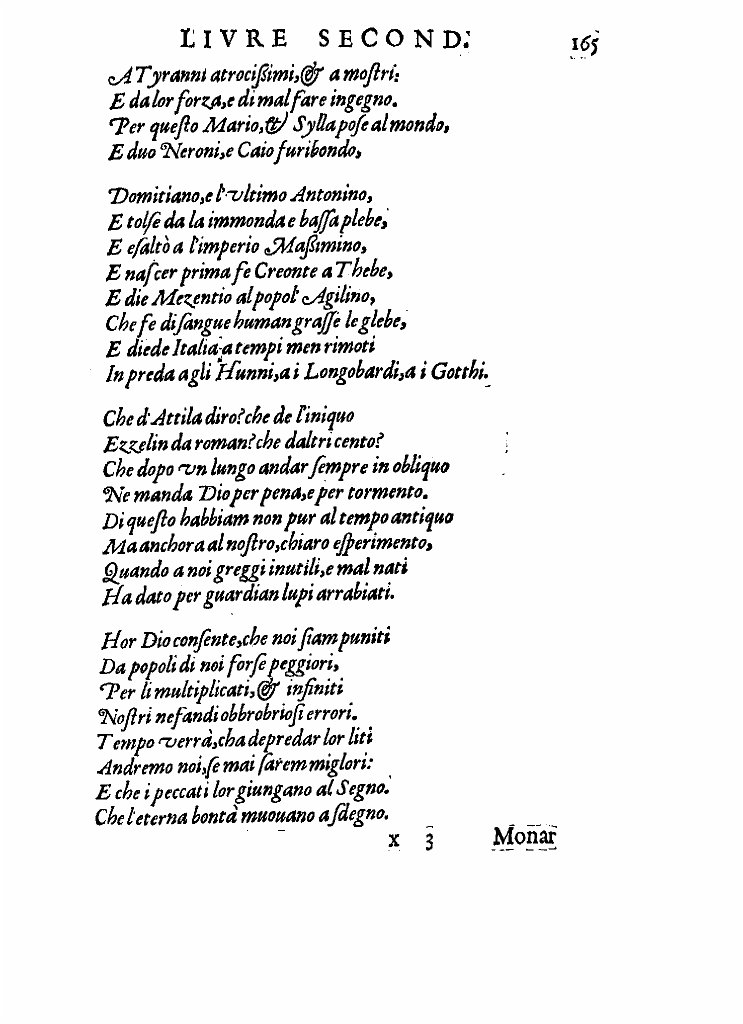 LIVRE SECOND. 165
A Tyranni atrocißimi, & a mostri:
E da lor forza, e di mal fare ingegno.
Per questo Mario, & Sylla pose al mondo,
E duo Neroni, e Caio furibondo,
Domitiano, e l'vltimo Antonino,
E tolse da la immonda e bassa plebe,
E esaltò a l'imperio Maßimino,
E nascer prima fe Creonte a Thebe,
E die Mezentio al popol' Agilino,
Che fe di sangue human grasse le glebe,
E diede Italia a tempi men rimoti
In preda agli Hunni, a i Longobardi, a i Gotthi.
Che d'Attila diro? che de l'iniquo
Ezzelin da roman? che daltri cento?
Che dopo vn lungo andar sempre in obliquo
Ne manda Dio per pena, e per tormento.
Di questo habbiam non pur al tempo antiquo
Ma anchora al nostro, chiaro esperimento,
Quando a noi greggi inutili, e mal nati
Ha dato per guardian lupi arrabiati.
Hor Dio consente, che noi siam puniti
Da popoli di noi forse peggiori,
Per li multiplicati, & infiniti
Nostri nefandi obbrobriosi errori.
Tempo verrà, cha depredar lor liti
Andremo noi, se mai sarem miglori:
E che i peccati lor giungano al Segno.
Che l'eterna bontà muouano a sdegno.
x 3 Monar